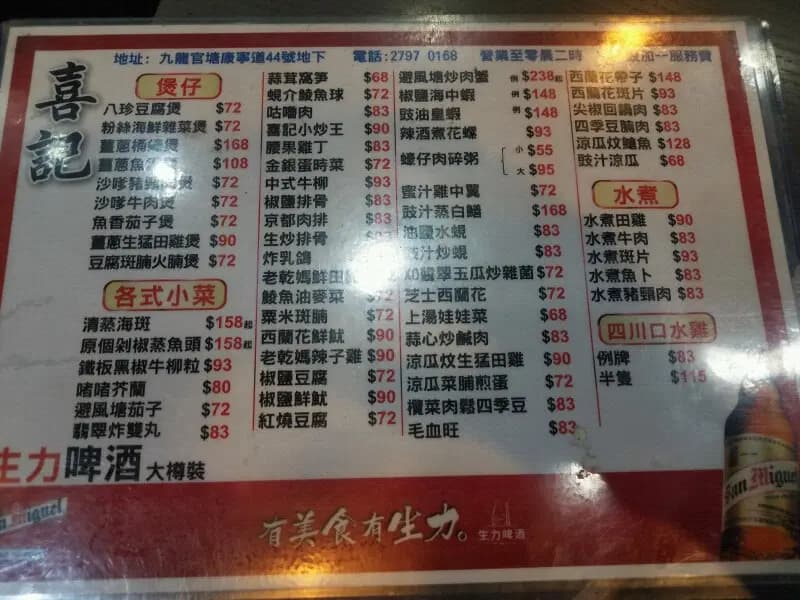 喜記
地址: 九龍官塘康寧道44號地下 電話:2797 0168 營業至零晨二時 設加一服務費
煲仔
八珍豆腐煲 $72
粉絲海鮮雜菜煲 $72
薑蔥桶蠔煲 $168
薑蔥魚 煲 $108
沙嗲豬 煲 $72
沙嗲牛肉煲 $72
魚香茄子煲 $72
薑蔥生猛田雞煲 $90
豆腐斑腩火腩煲 $72
各式小菜
清蒸海斑 $158起
原個剁椒蒸魚頭 $158起
鐵板黑椒牛柳粒 $93
啫啫芥蘭 $80
避風塘茄子 $72
翡翠炸雙丸 $83
蒜茸窩筍 $68
蜆介鯪魚球 $72
咕嚕肉 $83
喜記小炒王 $90
腰果雞丁 $83
金銀蛋時菜 $72
中式牛柳 $93
椒鹽排骨 $83
京都肉排 $83
生炒排骨
炸乳鴿
老乾媽鮮田
鯪魚油麥菜 $72
粟米斑腩 $72
西蘭花鮮魷 $90
老乾媽辣子雞 $90
椒鹽豆腐 $72
椒鹽鮮魷 $90
紅燒豆腐 $72
避風塘炒肉蟹 例 $238起
椒鹽海中蝦 例 $148
豉油皇蝦 例 $148
辣酒煮花螺 $93
蠔仔肉碎粥 小 $55
大 $95
蜜汁雞中翼 $72
豉汁蒸白鱔 $168
油鹽水蜆 $83
豉汁炒蜆 $83
XO翡翠玉瓜炒雜菌 $72
芝士西蘭花 $72
上湯娃娃菜 $68
蒜心炒鹹肉 $83
涼瓜炆生猛田雞 $90
涼瓜菜脯煎蛋 $72
欖菜肉鬆四季豆 $83
毛血旺 $83
西蘭花帶子 $148
西蘭花斑片 $93
尖椒回鍋肉 $83
四季豆腩肉 $83
涼瓜炆鱠魚 $128
豉汁涼瓜 $68
水煮
水煮田雞 $90
水煮牛肉 $83
水煮斑片 $93
水煮魚卜 $83
水煮豬頸肉 $83
四川口水雞
例牌 $83
半隻 $115
生力啤酒 大樽裝
San Miguel
有美食有生力。 生力啤酒
San Miguel